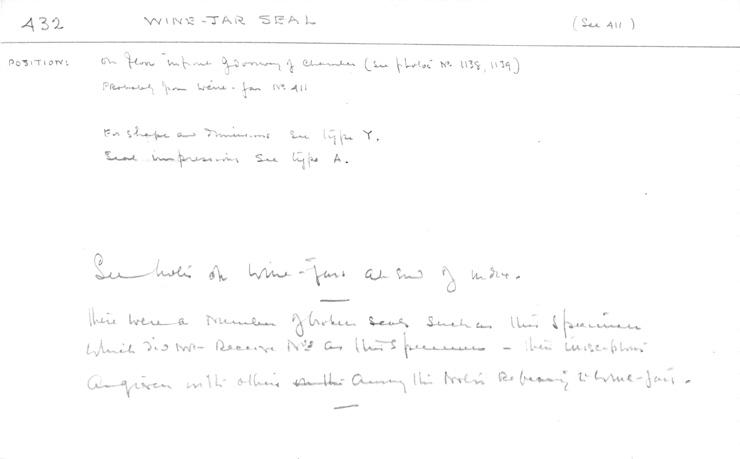 432 WINE-JAR SEAL (See 411)
POSITION: On floor in front of doorway of chamber (see photos Nº 1138, 1139)
Probably from wine-jar Nº 411
For shape and dimensions see type Y.
Seal impressions see type A.
See notes on Wine-Jars at end of index.
There were a number of broken seals such as this specimen
which did not receive Nºs as this specimen - their inscriptions
are given with others among the notes referring to wine-jars.